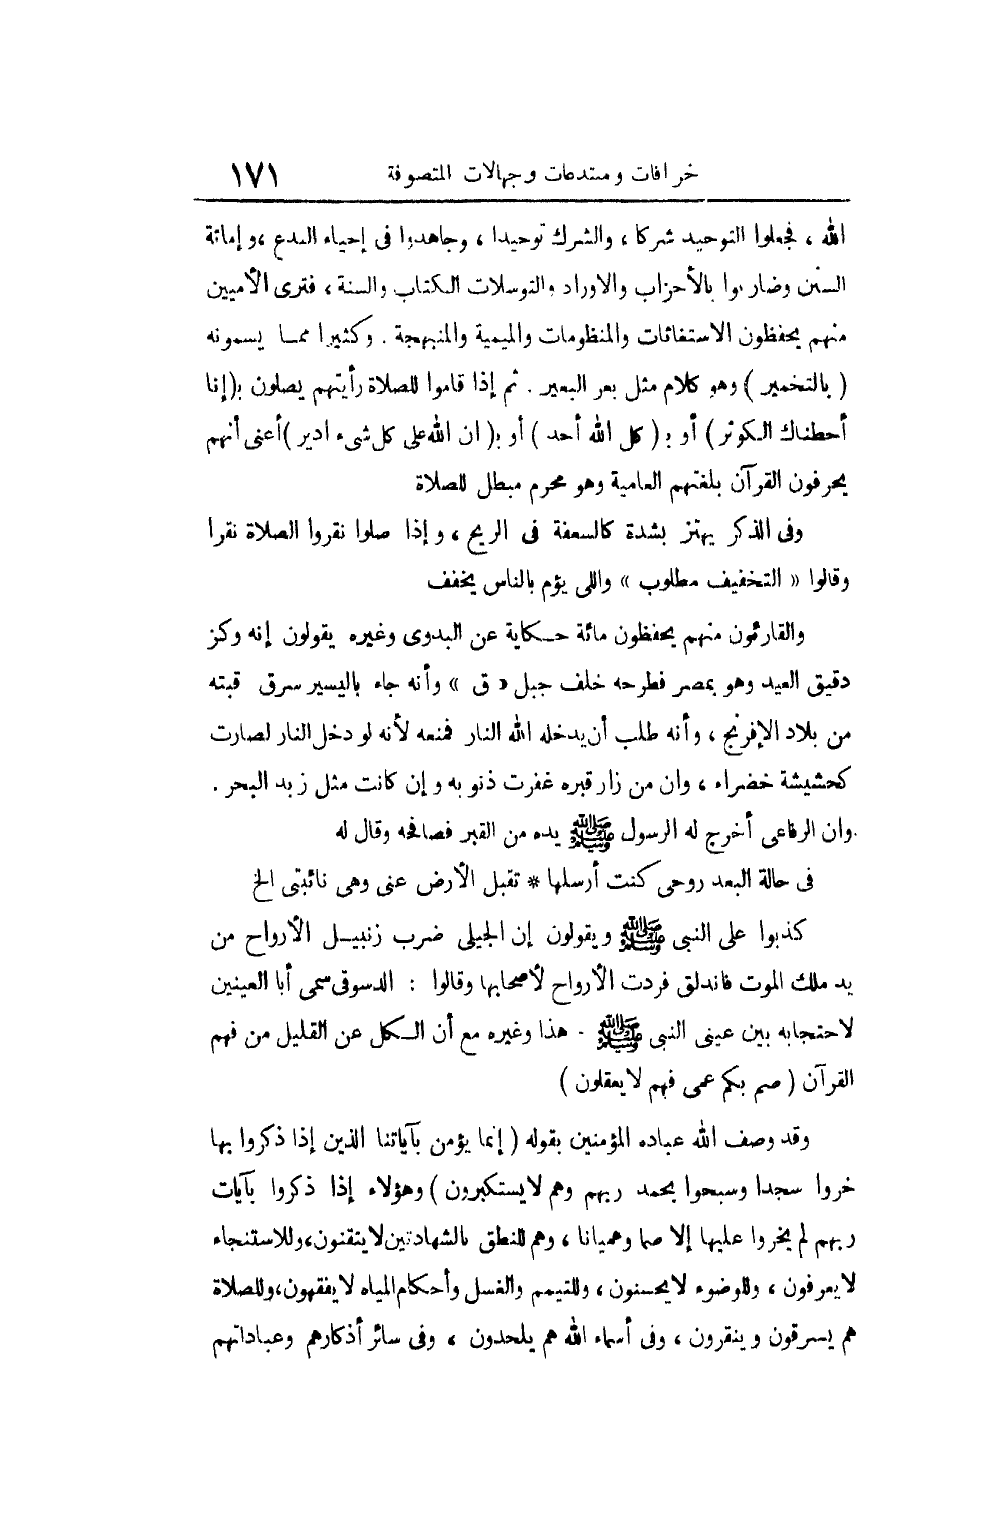 خرافات ومبتدعات وجهالات المتصوفة ١٧١
الله ، فجعلوا التوحيد شركا ، والشرك توحيدا ، وجاهدوا فى إحياء البدع ، و إماتة
السنن وضاربوا بالأحزاب والاوراد والتوسلات الكتاب والسنة ، فترى الأميين
منهم يحفظون الاستغاثات والمنظومات والميمية والمنبهجة . وكثيرا ممـا يسمونه
( بالتخمير ) وهو كلام مثل بعر البعير . ثم إذا قاموا للصلاة رأيتهم يصلون بـ( إنا
أحطناك الكوثر ) أو بـ ( كل الله أحد ) أو بـ( ان الله على كل شىء ادير ) أعنى أنهم
يحرفون القرآن بلغتهم العامية وهو محرم مبطل للصلاة
وفى الذكر يهتز بشدة كالسعفة فى الريح ، و إذا صلوا نقروا الصلاة نقرا
وقالوا « التخفيف مطلوب » واللى يؤم بالناس يخفف
والقارئون منهم يحفظون مائة حـكاية عن البدوى وغيره يقولون إنه وكز
دقيق العيد وهو بمصر فطرحه خلف جبل « ق » وأنه جاء باليسير سرق قبته
من بلاد الإفرنج ، وأنه طلب أن يدخله الله النار فمنعه لأنه لو دخل النار لصارت
كحشيشة خضراء ، وان من زار قبره غفرت ذنوبه و إن كانت مثل زبد البحر .
وان الرفاعى أخرج له الرسول ﷺ يده من القبر فصافحه وقال له
فى حالة البعد روحى كنت أرسلها * تقبل الأرض عنى وهى نائبتى الخ
كذبوا على النبى ﷺ ويقولون إن الجيلى ضرب زنبيـل الأرواح من
يد ملك الموت فاندلق فردت الأرواح لأصحابها وقالوا : الدسوقى سمى أبا العينين
لاحتجابه بين عينى النبى ﷺ - هذا وغيره مع أن الـكل عن القليل من فهم
القرآن ( صم بكم عمى فهم لا يعقلون )
وقد وصف الله عباده المؤمنين بقوله ( إنما يؤمن بآياتنا الذين إذا ذكروا بها
خروا سجدا وسبحوا بحمد ربهم وهم لا يستكبرون ) وهؤلاء إذا ذكروا بآيات
ربهم لم يخروا عليها إلا صما وعميانا ، وهم للنطق بالشهادتين لا يتقنون، وللاستنجاء
لا يعرفون ، وللوضوء لا يحسنون ، وللتيمم والغسل وأحكام المياه لا يفقهون، وللصلاة
هم يسرقون و ينقرون ، وفى أسماء الله هم يلحدون ، وفى سائر أذكارهم وعباداتهم